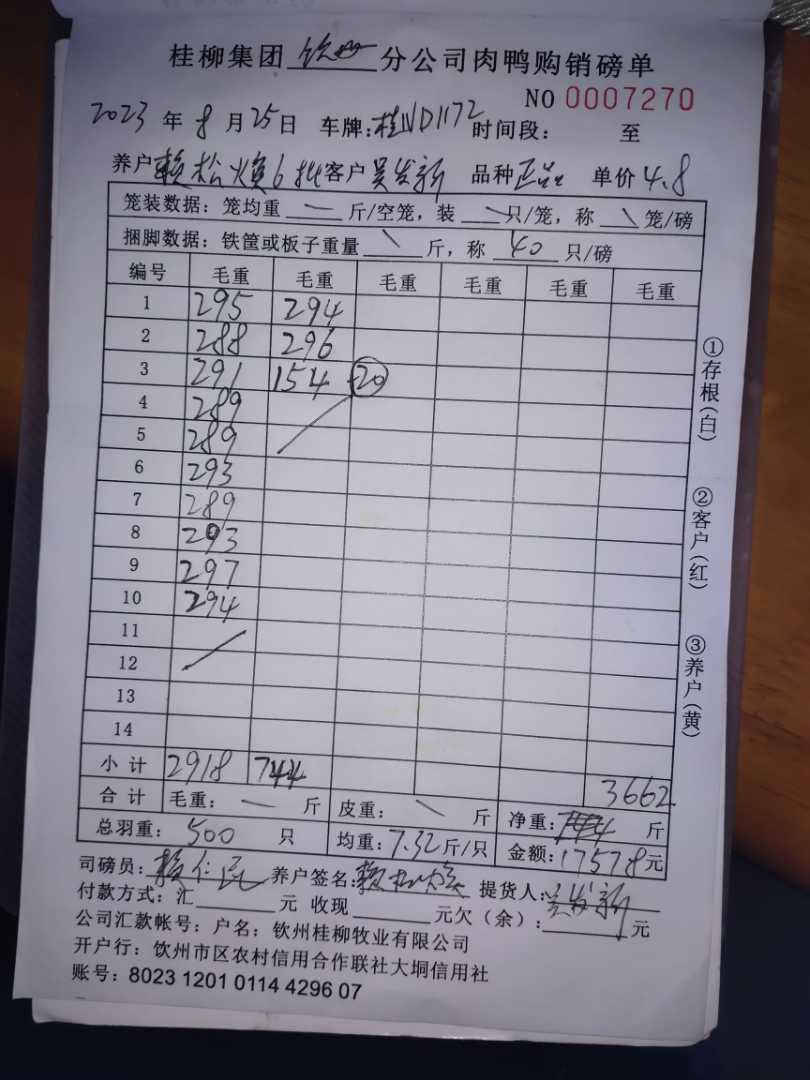 桂柳集团 钦州 分公司肉鸭购销磅单
NO 0007270
2023 年 8 月 25 日 车牌: 桂ND1172 时间段: 至
养户 赖松焕6批 客户 吴发新 品种 正品 单价 4.8
笼装数据: 笼均重 — 斤/空笼, 装 — 只/笼, 称 \ 笼/磅
捆脚数据: 铁筐或板子重量 \ 斤, 称 40 只/磅
编号 毛重 毛重 毛重 毛重 毛重 毛重
1 295 294
2 288 296
3 291 154 20
4 289
5 289
6 293
7 289
8 293
9 297
10 294
11
12
13
14
小计 2918 744 3662
合计 毛重: — 斤 皮重: \ 斤 净重: 斤
总羽重: 500 只 均重: 7.32 斤/只 金额: 17578 元
司磅员: 赖仁 养户签名: 赖松焕 提货人: 吴发新
付款方式: 汇 元 收现 元欠(余): 元
公司汇款帐号: 户名: 钦州桂柳牧业有限公司
开户行: 钦州市区农村信用合作联社大垌信用社
账号: 8023 1201 0114 4296 07
①存根(白)
②客户(红)
③养户(黄)